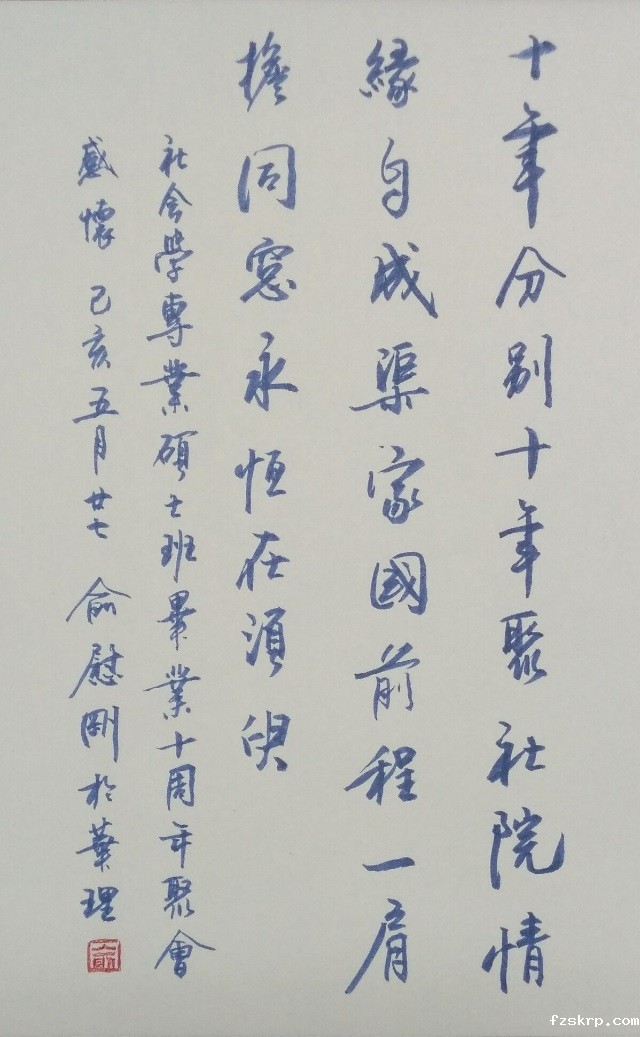 十年分别十年聚社院情
緣自成渠家國前程一肩
擔同窓永恒在須臾
社会學專業碩士班畢業十周年聚會
感懷己亥五月廿七俞慰剛於華理
fzskrp.com